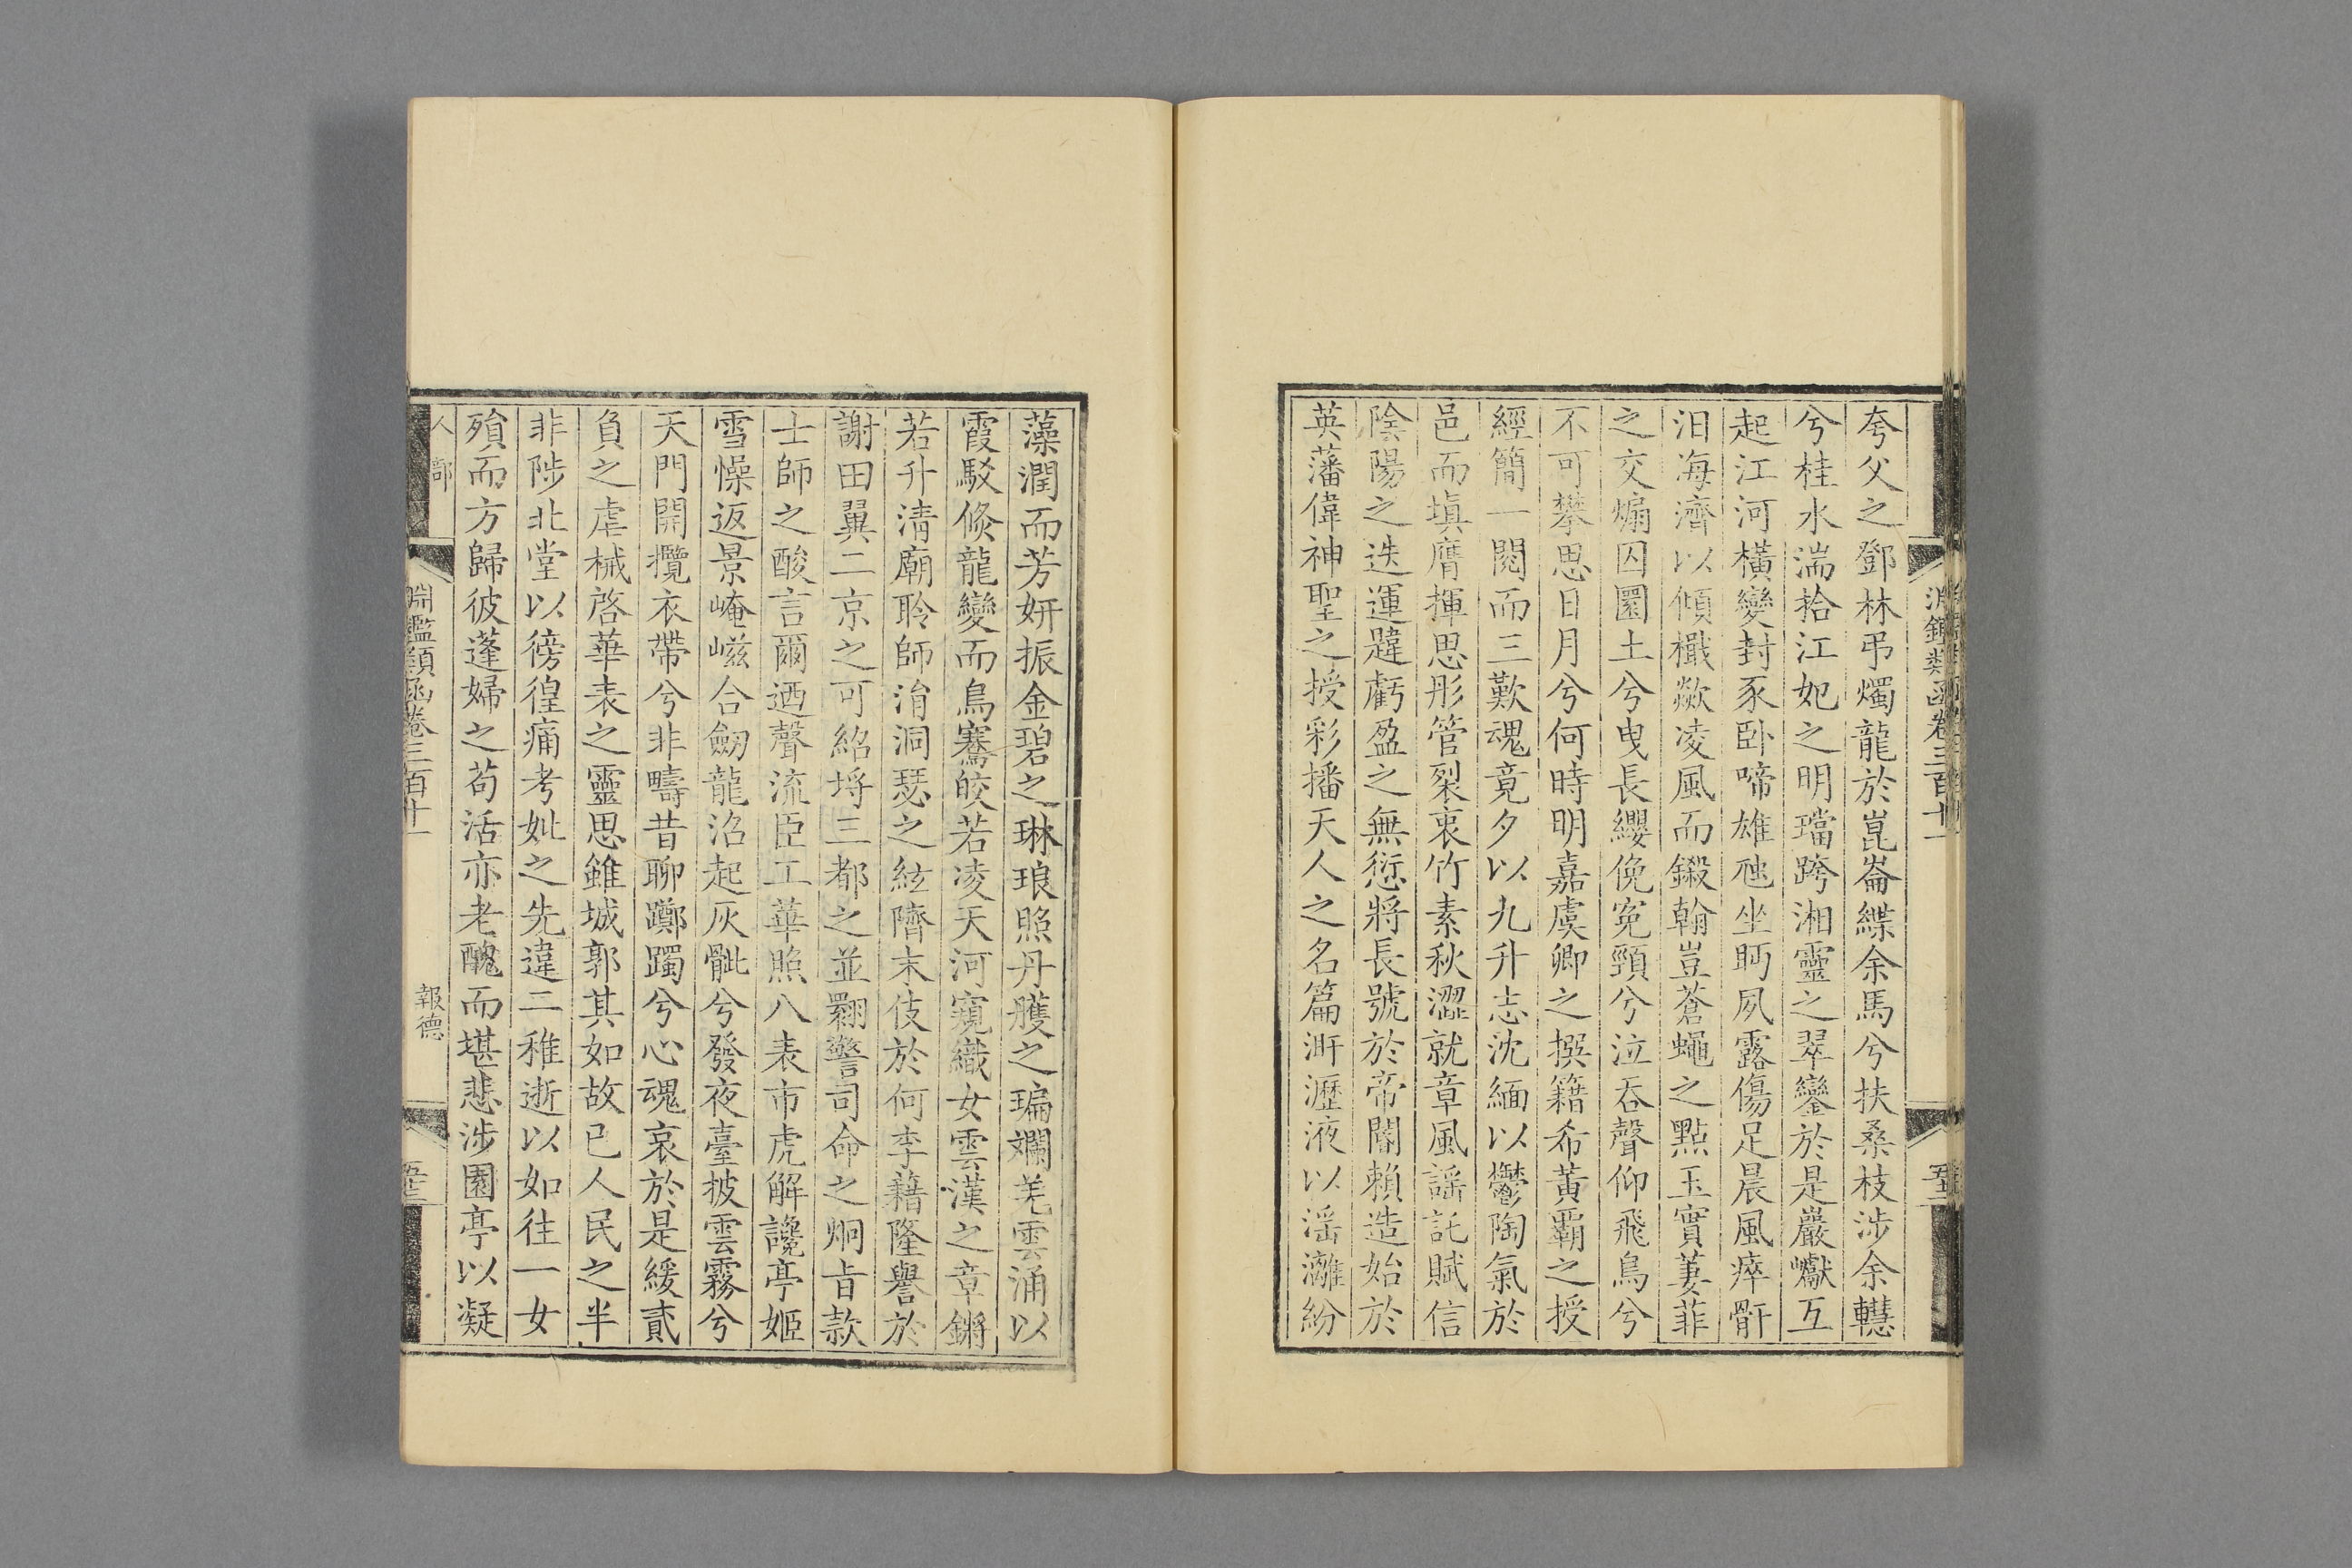 夸父之鄧林弔燭龍於崑崙緤余馬兮扶桑枝涉余轊
兮桂水湍拾江妃之明璫跨湘靈之翠鑾於是巖巘互
起江河橫變封豕卧啼雄虺坐眄夙露傷足晨風瘁骭
汨海濟以傾檝歘凌風而鎩翰豈蒼蠅之點玉實萋菲
之交煽囚圜土兮曳長纓俛寃頸兮泣吞聲仰飛鳥兮
不可攀思日月兮何時明嘉虞卿之撰籍希黃霸之授
經簡一閱而三歎魂竟夕以九升志沈緬以鬱陶氣於
邑而塡膺揮思彤管裂衷竹素秋澀就章風謡託賦信
陰陽之迭運韙虧盈之無愆將長號於帝閽賴造始於
英藩偉神聖之授彩播天人之名篇涆瀝液以滛灕紛
藻潤而芳妍振金碧之琳琅照丹雘之㻞斕羌雲涌以
霞駁倐龍變而鳥騫皎若凌天河窺織女雲漢之章鏘
若升清廟聆師涓洞瑟之絃隮末伎於何李籍隆譽於
謝田翼二京之可紹埒三都之並翾警司命之炯旨款
士師之酸言爾迺聲流臣工華照八表市虎解讒亭姬
雪懆返景崦嵫合劒龍沼起灰骴兮發夜臺披雲霧兮
天門開攬衣帶兮非疇昔聊躑躅兮心魂哀於是緩貳
負之虐械啓華表之靈思雖城郭其如故已人民之半
非陟北堂以徬徨痛考妣之先違二稚逝以如往一女
殞而方歸彼蓬婦之苟活亦老醜而堪悲涉園亭以凝
人部
淵鑑類函卷三百十一
報德